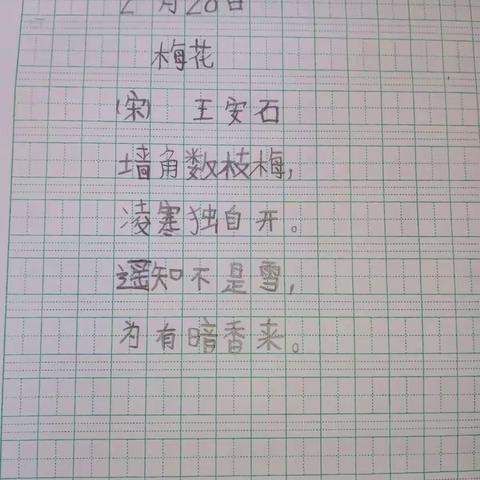 2月28日
梅花
(宋) 王安石
墙角数枝梅,
凌寒独自开。
遥知不是雪,
为有暗香来。